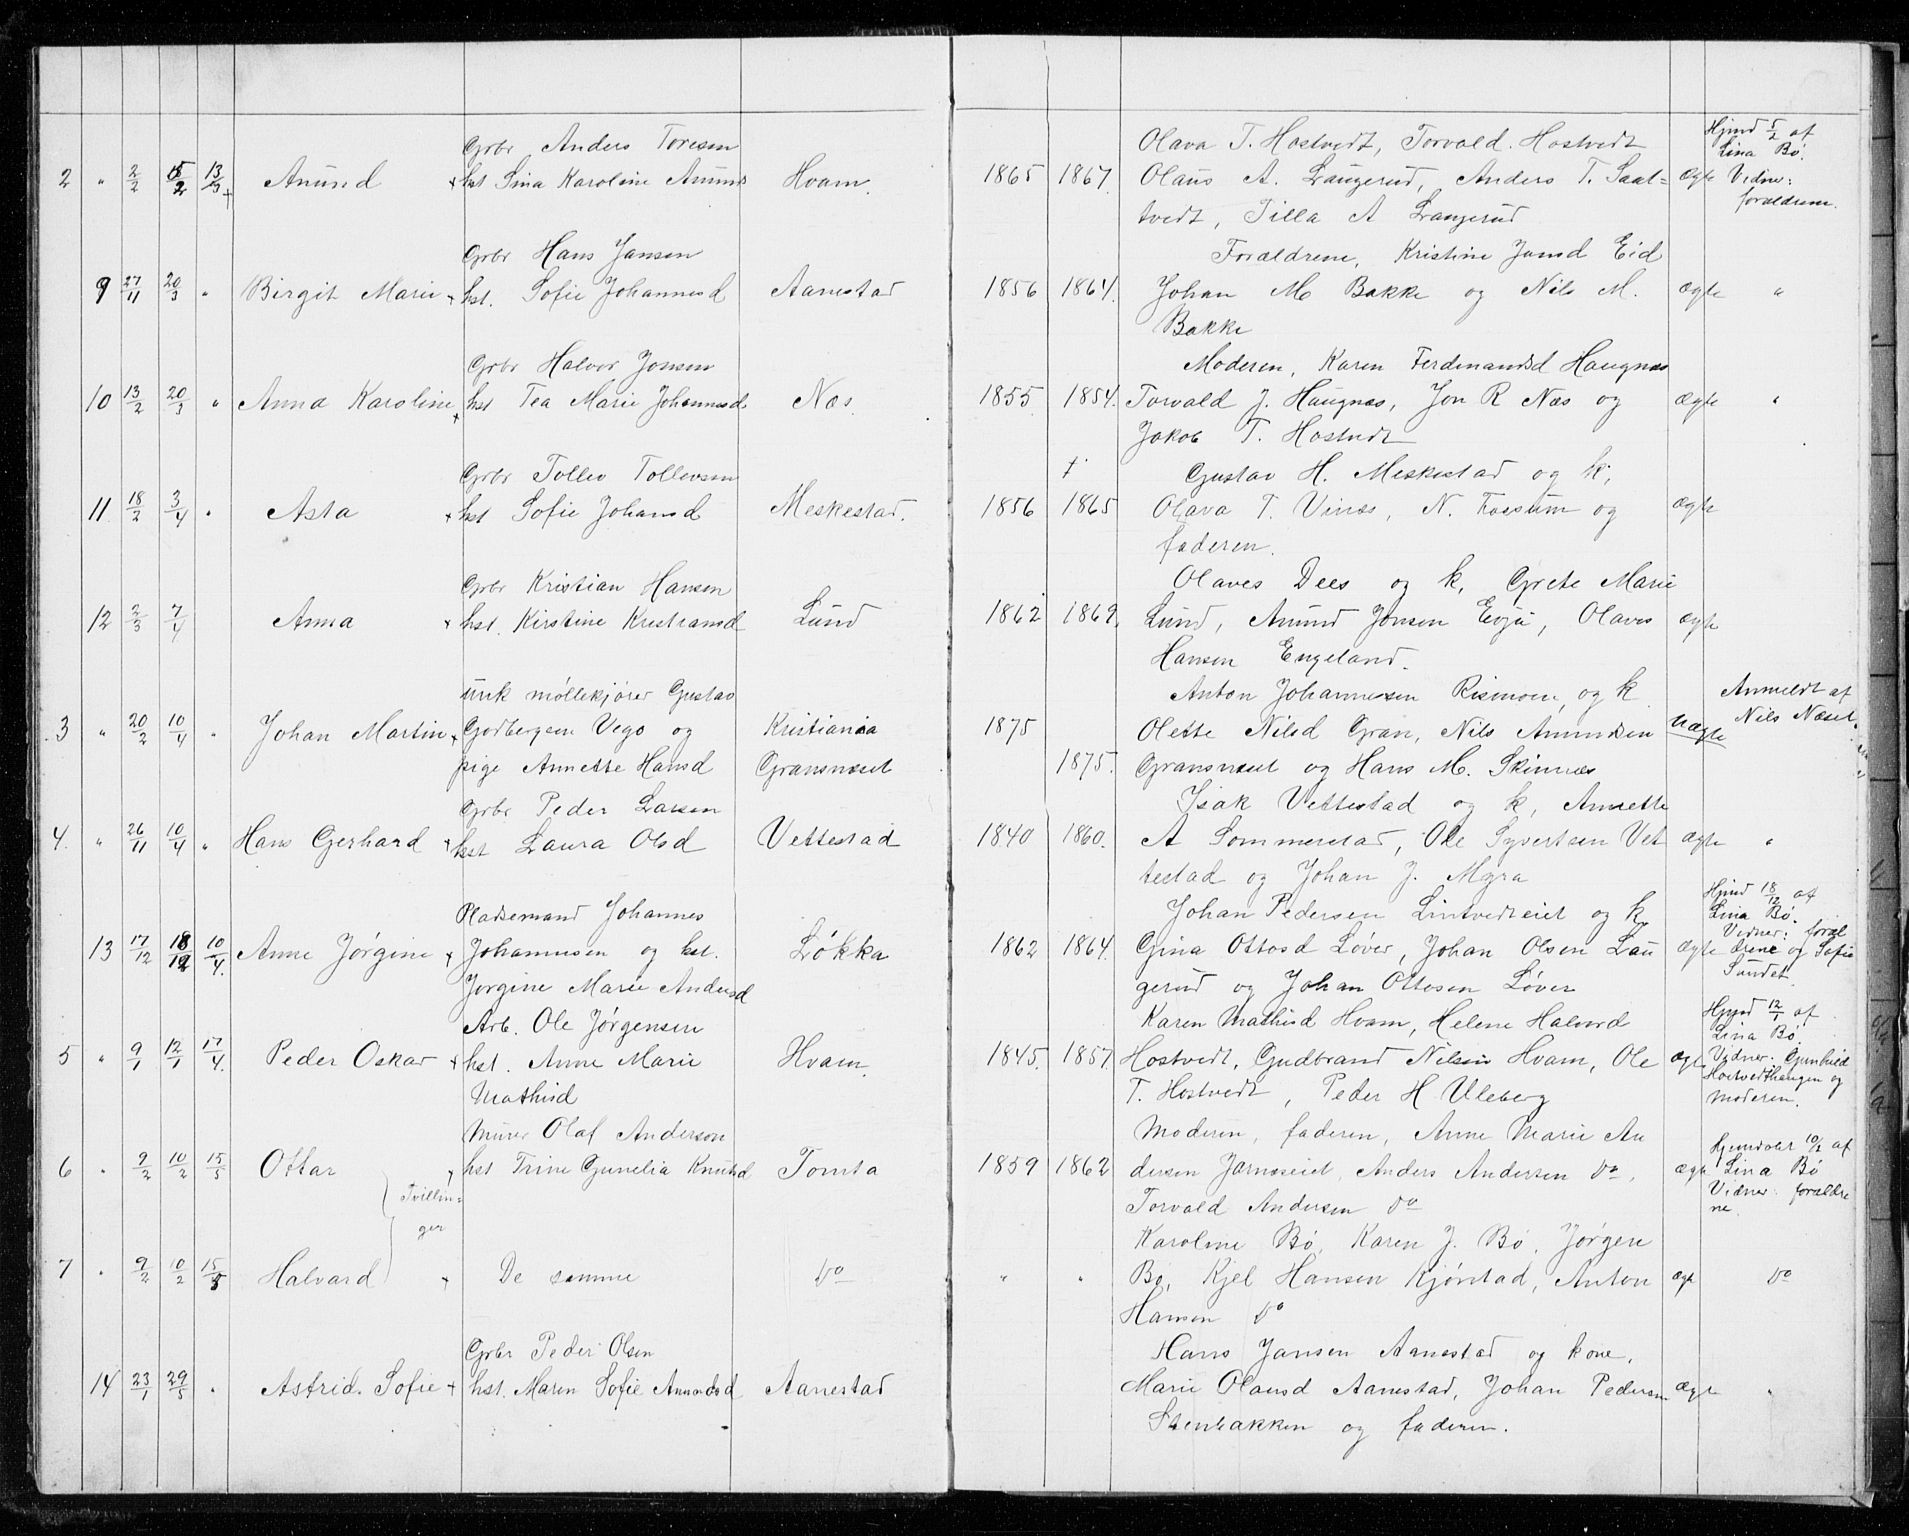 Grbr Anders Toresen
Olava T. Hostvedt, Torvald Hostvedt
Hjmd 5/2 af
Lina Bø.
2 " 2/2 5/2 13/3 Anund hst Lina Karoline Anunds Hvam. 1865 1867 Olaus A. Laugerud, Anders T. Saat= ægte Vidne:
tvedt, Tilla A Laugerud
forældrene.
Grbr Hans Jansen
Forældrene, Kristine Jansd Eid
9 27/11 20/3 " Birgit Marie hst. Sofie Johannesd Aanestad 1856 1864. Johan M Bakke og Nils M. ægte "
Bakke
Grbr Halvor Jonsen
Moderen, Karen Ferdinandsd Haugnæs
10 13/2 20/3 " Anna Karoline hst Tea Marie Johannesd Næs. 1855 1854. Torvald J. Haugnæs, Jon R Næs og ægte "
Jakob T. Hostvedt
Grbr Tollev Tollevsen
† Gustav H. Meskestad og k,
11 18/2 3/4 " Asta hst Sofie Johansd Meskestad. 1856 1865 Olava T. Vinæs, N. Fossum og ægte
faderen.
Grbr Kristian Hansen
Olaves Dees og k, Grete Marie
12 2/3 7/4 Anna hst. Kirstine Kristiansd Lund 1862 1869. Lund, Anund Jonsen Evju, Olaves ægte
Hansen Engeland.
unk møllekjører Gustav
Anton Johannesen Rismoen, og k
Anmeldt af
3 " 20/2 10/4 " Johan Martin Godbergsen Vego og Kristiania 1875 Olette Nilsd Gran, Nils Anundsen uægte Nils Næset
pige Annette Hansd Gransnæset 1875. Gransnæset og Hans M. Skinnæs
Grbr Peder Larsen
Isak Vettestad og k, Annette
4. " 26/11 10/4 " Hans Gerhard hst Laura Olsd Vettestad 1840 1860. A Sommerstad, Ole Syvertsen Vet ægte "
testad og Johan J. Myra
Pladsemand Johannes
Johan Pedersen Lintvedteiet og k,
Hjmd 18/12 af
Lina Bø.
13 17/12 18/12 10/4. Anne Jørgine Johannesen og hst. Løkka 1862 1864. Gina Ottosd Løver, Johan Olsen Lau ægte Vidner: foræl
drene og Sofie
Sundet.
Jørgine Marie Andersd
gerud og Johan Ottosen Løver
Arb. Ole Jørgensen
Karen Mathisd Hvam, Helene Halvord
Hjmd 12/1 af
Lina Bø
5 " 9/1 12/1 17/4. Peder Oskar hst. Anne Marie Hvam. 1845. 1857 Hostvedt, Gudbrand Nilsen Hvam, Ole ægte Vidner: Gunhild
Hostvedthaugen og
moderen.
Mathisd
T. Hostvedt, Peder H Uleberg
Murer Olaf Anderson
Moderen, faderen, Anne Marie An
Hjemdøbt 10/2 af
6 " 9/2 10/2 15/5 Ottar hst Trine Gunelia Knutsd Tomta 1859 1862 dersen Jarnseiet, Anders Andersen do, ægte Lina Bø
Tvillin=
ger
Vidner: forældre
ne.
Torvald Andersen do
Karoline Bø, Karen J. Bø, Jørgen
7 " 9/2 10/2 15/5 Halvard De samme do " " Bø, Kjel Hansen Kjørstad, Anton ægt do
Hansen do
Grbr Peder Olsen
Hans Jansen Aanestad og kone,
14 23/1 29/5 " Astrid Sofie hst. Maren Sofie Anundsd Aanestad Marie Olausd Aanestad, Johan Pedersen ægte "
Stenbakken og faderen.